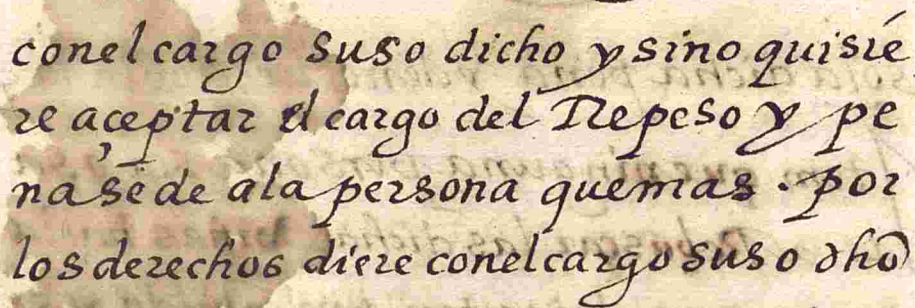 conel cargo suso dicho y sino quisie
re açeptar el cargo del Repeso y pe
nas se de ala persona quemas. por
los derechos diere conelcargo suso dho